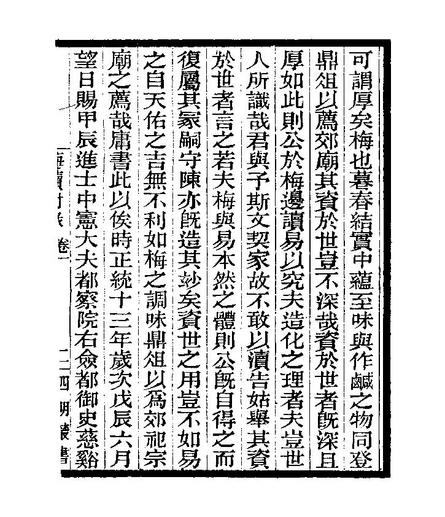 可謂厚矣梅也暮春結實中蘊至味與作鹹之物同登
鼎俎以薦郊廟其資於世豈不深哉資於世者旣深且
厚如此則公於梅邊讀易以究夫造化之理者夫豈世
人所識哉君與予斯文契家故不敢以瀆告姑舉其資
於世者言之若夫梅與易本然之體則公旣自得之而
復屬其冢嗣守陳亦旣造其玅矣資世之用豈不如易
之自天佑之吉無不利如梅之調味鼎俎以爲郊祀宗
廟之薦哉庸書此以俟時正統十三年歲次戊辰六月
望日賜甲辰進士中憲大夫都察院右僉都御史慈谿
卷一
四明叢書